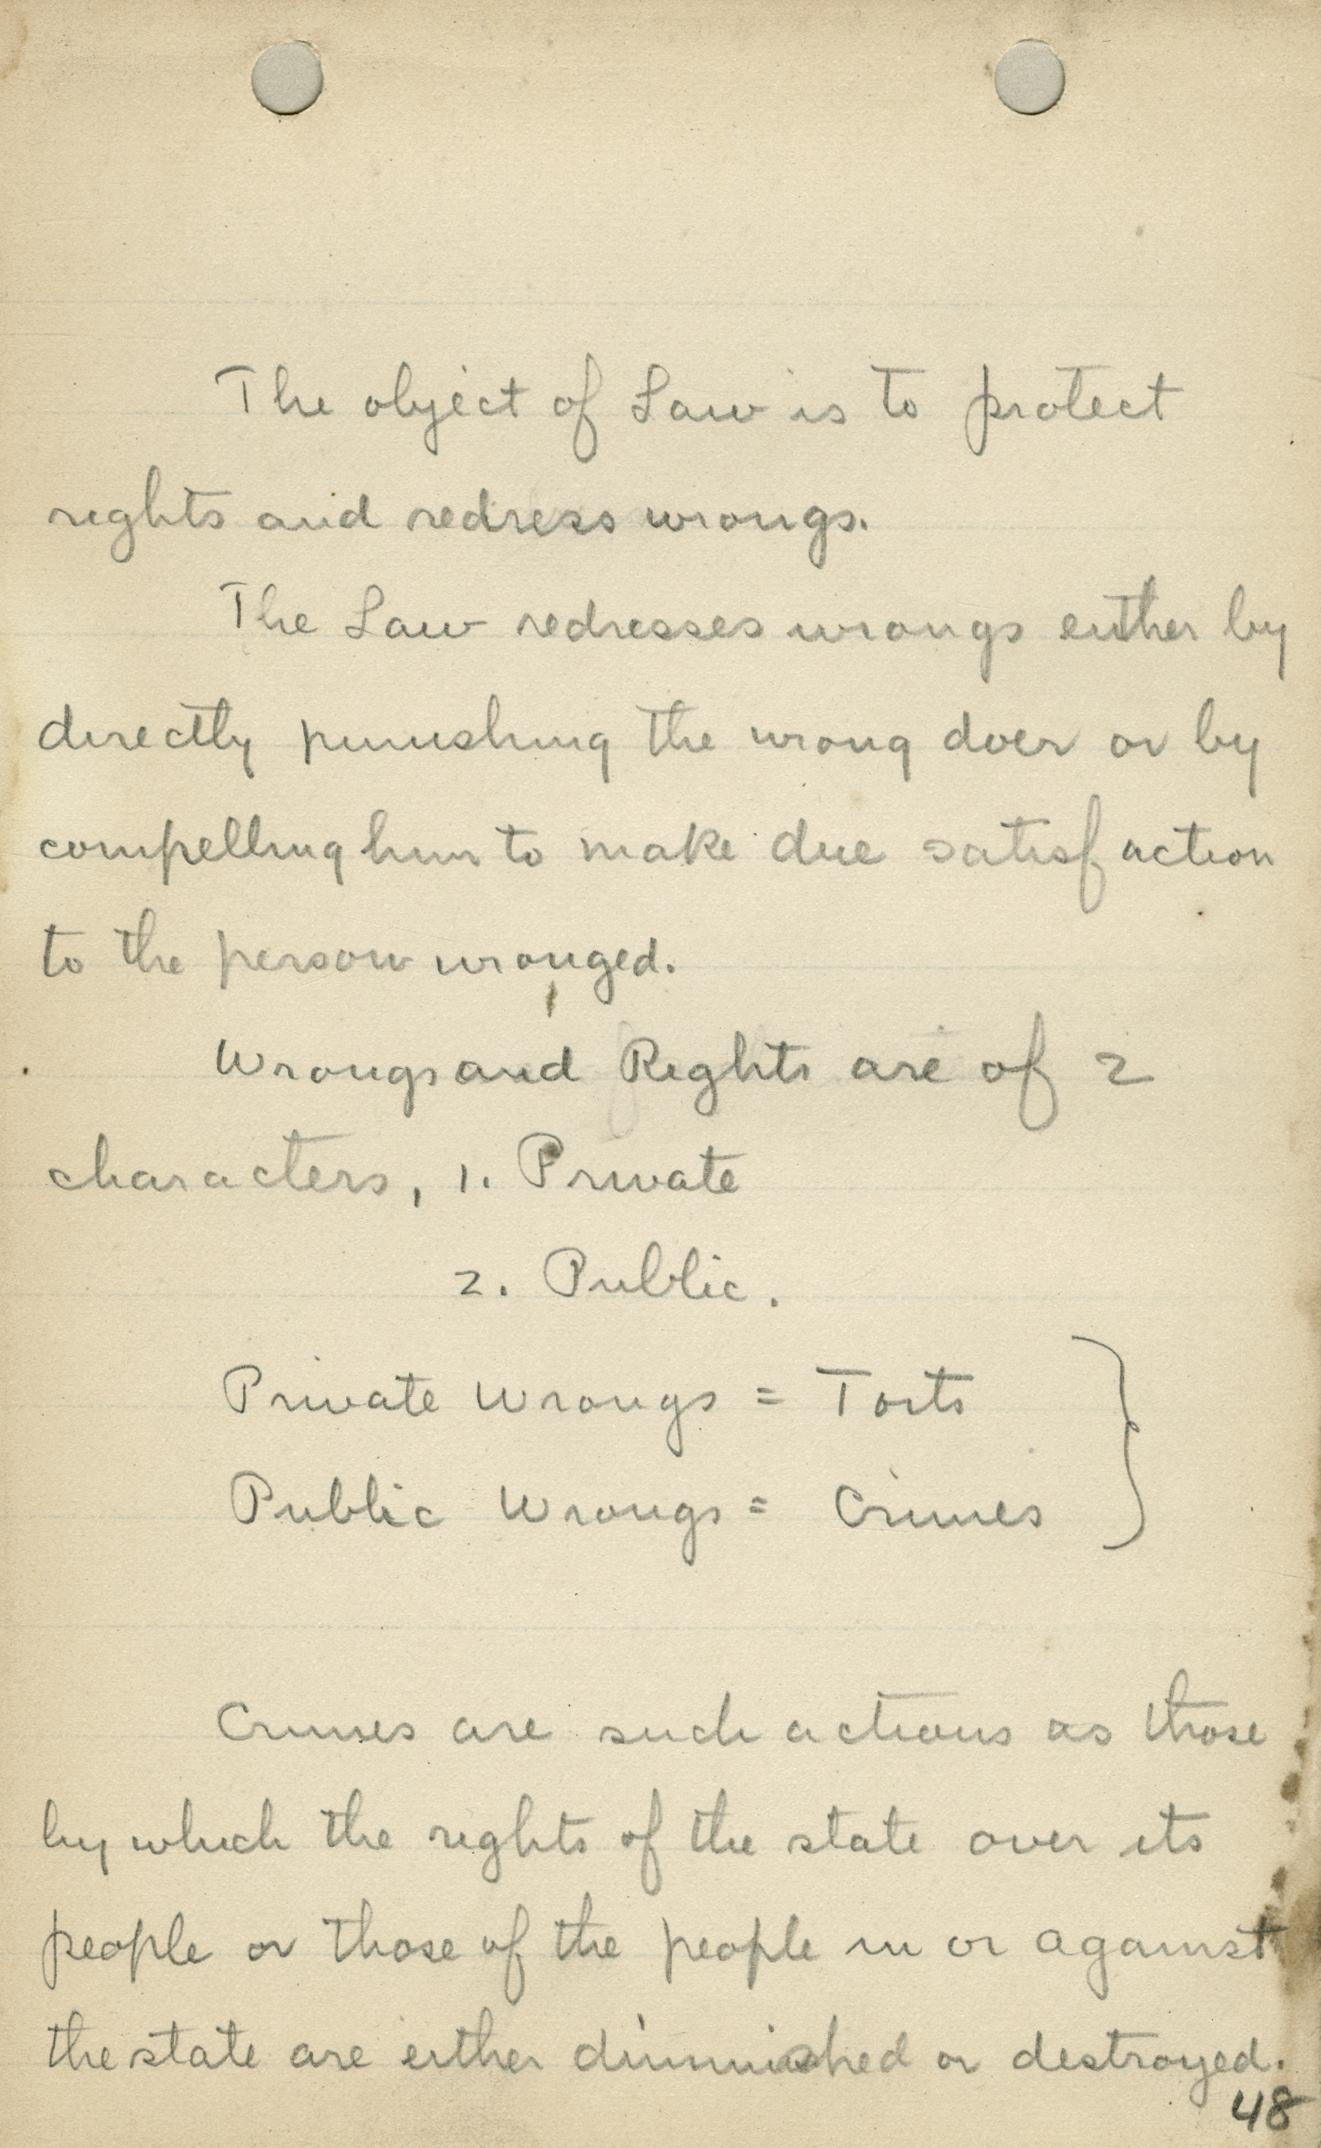 The object of Law is to protect
rights and redress wrongs.
The Law redresses wrongs either by
directly punishing the wrong doer or by
compelling him to make due satisfaction
to the person wronged.
Wrongs and Rights are of 2
characters, 1. Private
2. Public.
Private Wrongs = Torts
Public Wrongs = Crimes
Crimes are such actions as those
by which the rights of the state over its
people or those of the people in or against
the state are either diminished or destroyed.
48